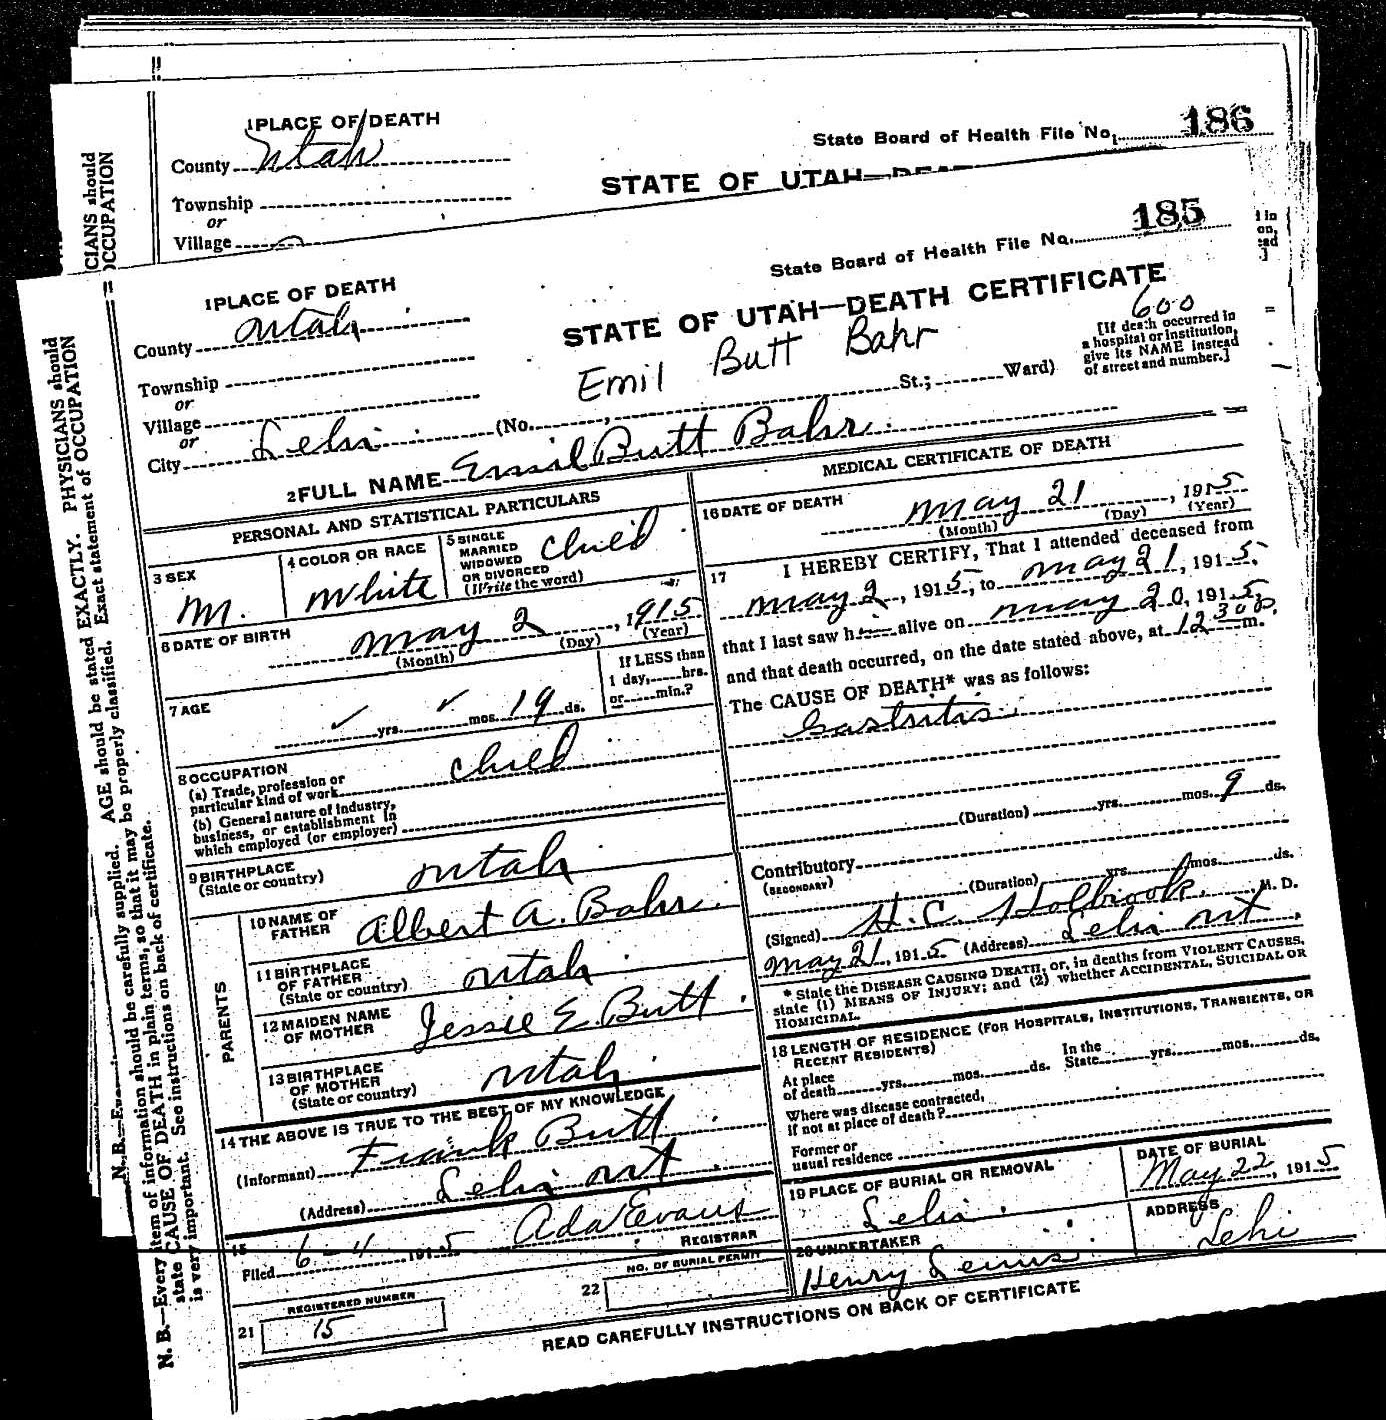 1 PLACE OF DEATH
County Utah
State Board of Health File No. 186
Township
or
Village
STATE OF UTAH—DEA
CIANS should
OCCUPATION
1 PLACE OF DEATH
County Utah
State Board of Health File No. 185
STATE OF UTAH—DEATH CERTIFICATE
600
Township
or
Village
or
City Lehi (No. , St.; Ward)
Emil Butt Bahr
[If death occurred in
a hospital or institution,
give its NAME instead
of street and number.]
2 FULL NAME Emil Butt Bahr.
PERSONAL AND STATISTICAL PARTICULARS
3 SEX
M.
4 COLOR OR RACE
White
5 SINGLE
MARRIED
WIDOWED
OR DIVORCED
(Write the word)
Child
6 DATE OF BIRTH
May 2, 1915
(Month) (Day) (Year)
7 AGE
✓ yrs. ✓ mos. 19 ds.
If LESS than
1 day, hrs.
or min.?
8 OCCUPATION
(a) Trade, profession or
particular kind of work
Child
(b) General nature of industry,
business, or establishment in
which employed (or employer)
9 BIRTHPLACE
(State or country)
Utah
PARENTS
10 NAME OF
FATHER
Albert A. Bahr.
11 BIRTHPLACE
OF FATHER
(State or country)
Utah
12 MAIDEN NAME
OF MOTHER
Jessie E. Butt.
13 BIRTHPLACE
OF MOTHER
(State or country)
Utah
14 THE ABOVE IS TRUE TO THE BEST OF MY KNOWLEDGE
(Informant) Frank Butt
(Address) Lehi Ut.
15
Filed 6-4 1915 Ada Evans
REGISTRAR
21
REGISTERED NUMBER
15
22
NO. OF BURIAL PERMIT
MEDICAL CERTIFICATE OF DEATH
16 DATE OF DEATH
May 21, 1915
(Month) (Day) (Year)
17 I HEREBY CERTIFY, That I attended deceased from
May 2, 1915, to May 21, 1915,
that I last saw h alive on May 20, 1915,
and that death occurred, on the date stated above, at 1230 m.
The CAUSE OF DEATH* was as follows:
Gastritis
(Duration) yrs. mos. 9 ds.
Contributory
(SECONDARY)
(Duration) yrs. mos. ds.
(Signed) H. C. Holbrook, M. D.
May 21, 1915 (Address) Lehi Ut
* State the DISEASE CAUSING DEATH, or, in deaths from VIOLENT CAUSES,
state (1) MEANS OF INJURY; and (2) whether ACCIDENTAL, SUICIDAL OR
HOMICIDAL.
18 LENGTH OF RESIDENCE (FOR HOSPITALS, INSTITUTIONS, TRANSIENTS, OR
RECENT RESIDENTS)
At place
of death yrs. mos. ds.
In the
State yrs. mos. ds.
Where was disease contracted,
If not at place of death?
Former or
usual residence
19 PLACE OF BURIAL OR REMOVAL
Lehi.
DATE OF BURIAL
May 22, 1915
20 UNDERTAKER
Henry Lewis
ADDRESS
Lehi
READ CAREFULLY INSTRUCTIONS ON BACK OF CERTIFICATE
N. B.—Every item of information should be carefully supplied. AGE should be stated EXACTLY. PHYSICIANS should
state CAUSE OF DEATH in plain terms, so that it may be properly classified. Exact statement of OCCUPATION
is very important. See instructions on back of certificate.